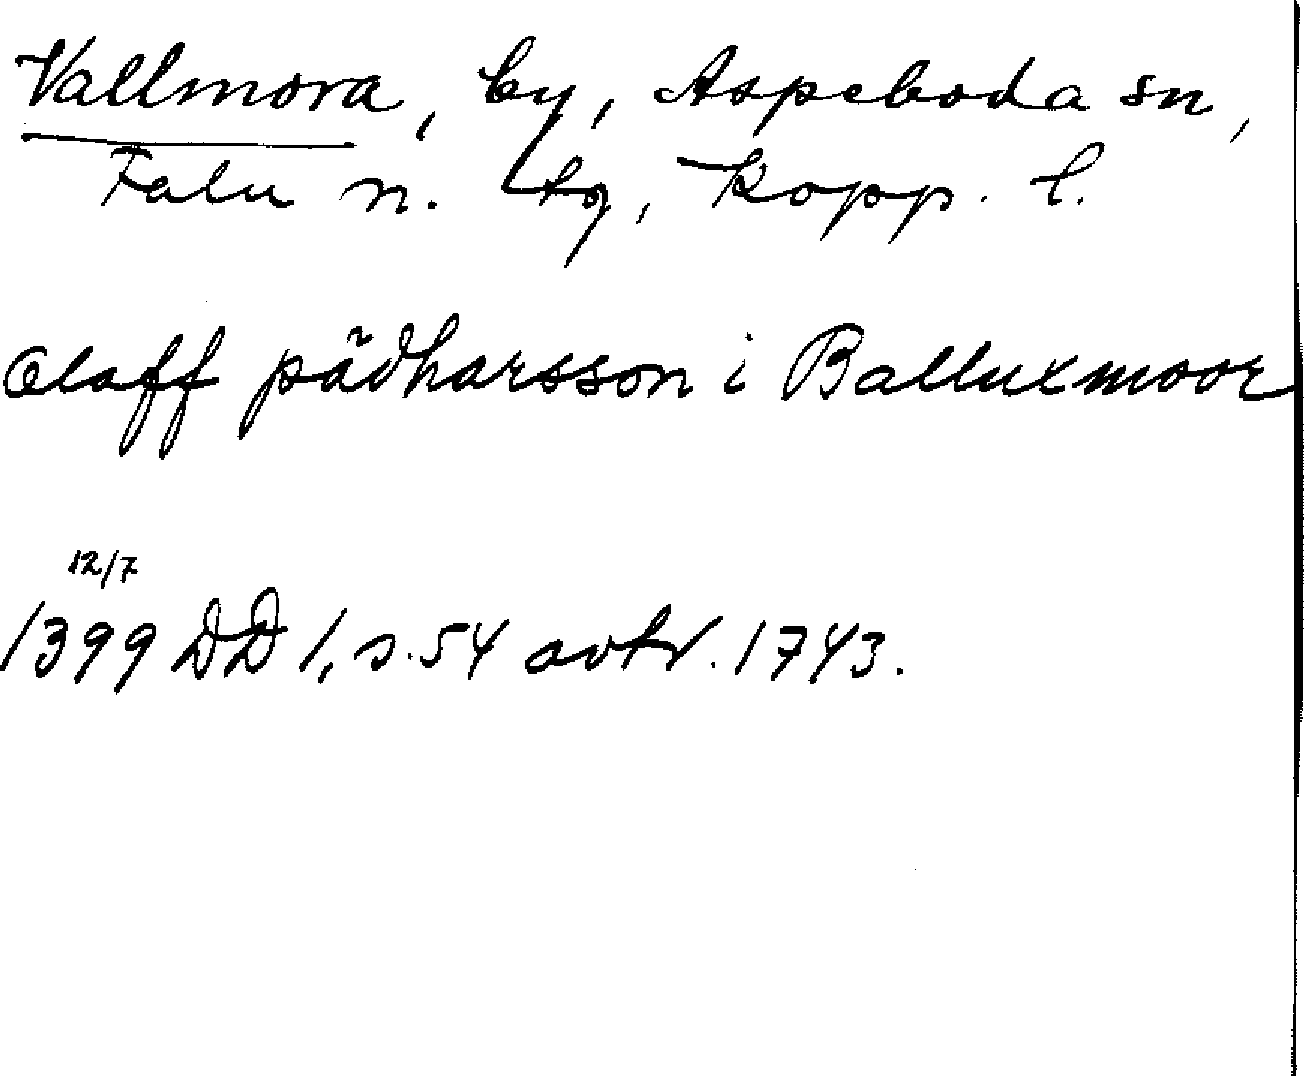 Vallmora, by, Aspeboda sn,
Falu n. tg, Kopp. l.
Olaff pädharsson i Balluxmoor
12/7
1399 DD 1, s. 54 avtr. 1743.